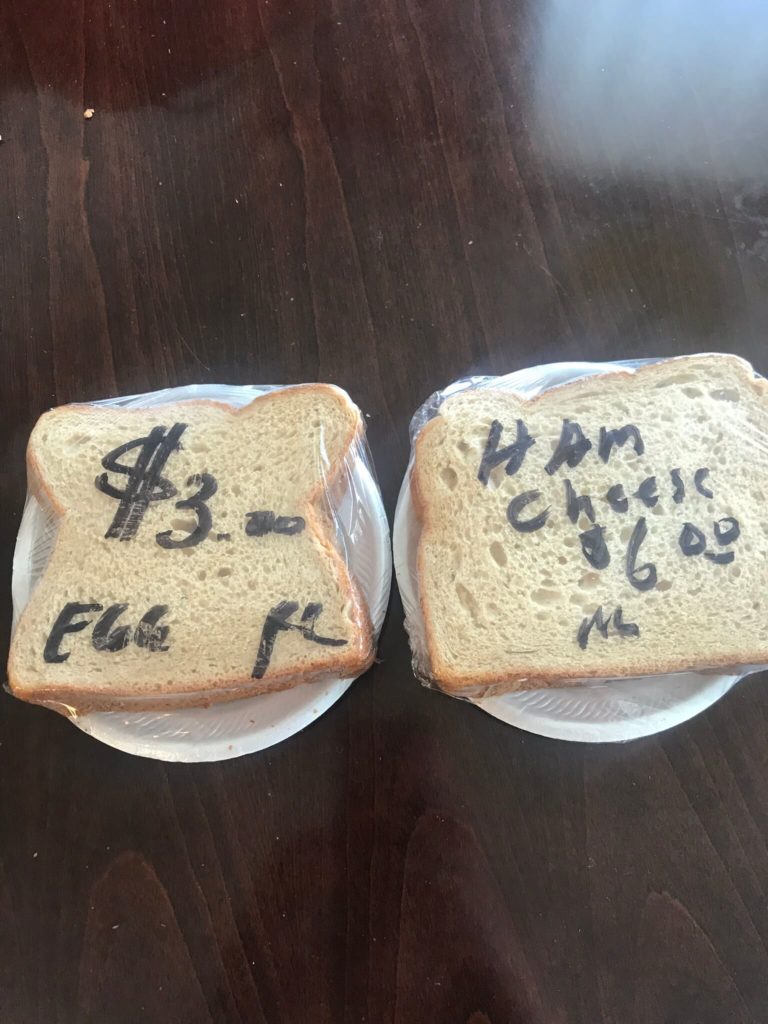 $3.00
EGG
HAM
cheese
$6.00